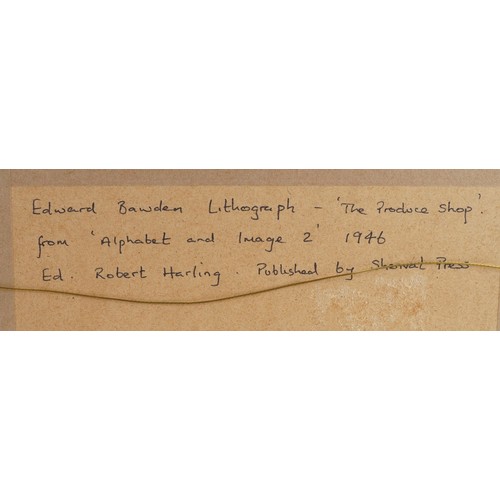 Edward Bawden Lithograph – 'The Produce Shop'.
from 'Alphabet and Image 2' 1946
Ed. Robert Harling. Published by Shenval Press